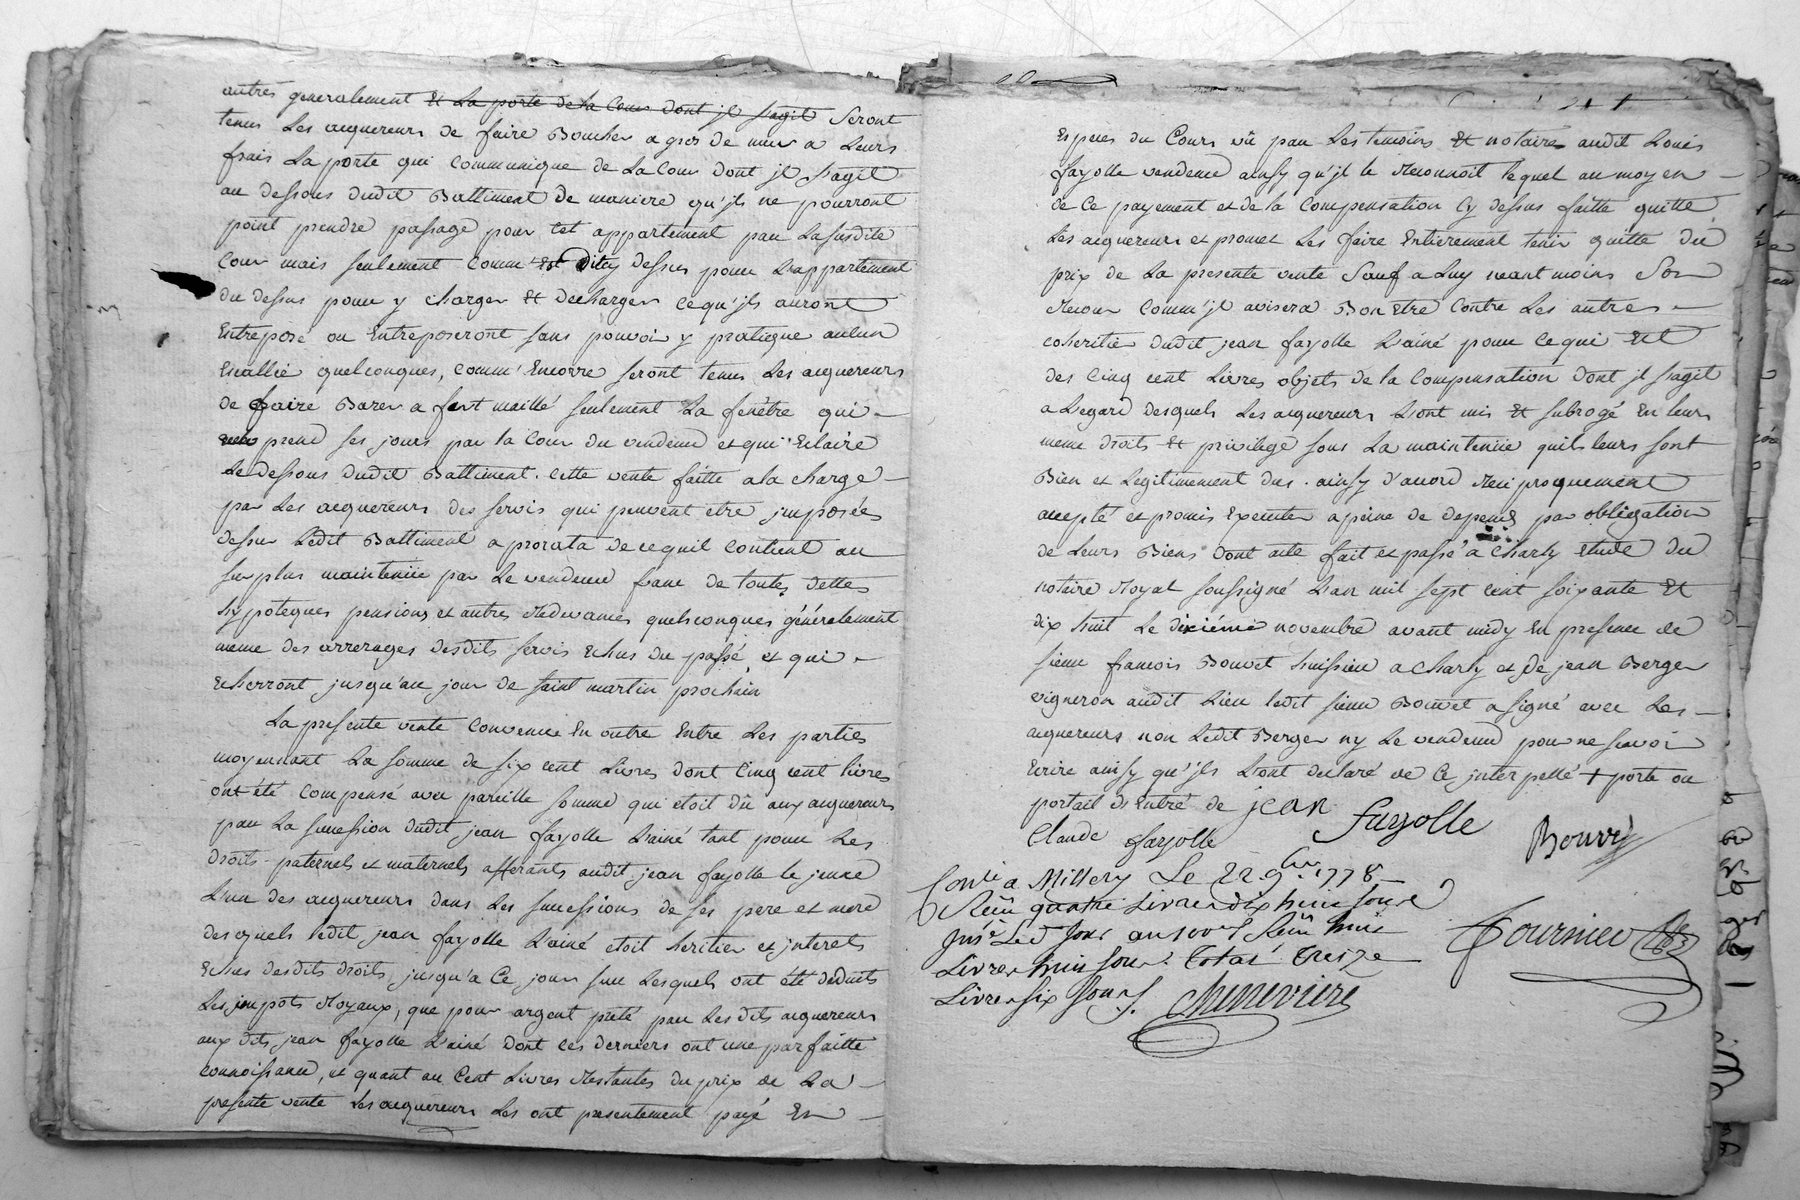 autres generalement et la porte de la cour dont jl sagit seront
tenus les acquereurs de faire Boucher a gros de mur a leurs
frais la porte qui communique de la cour dont jl sagit
au dessous dudit Battiment de maniere qu'jls ne pourront
point prendre passage pour cet appartement par la susdite
cour mais seulement comm' est dit cy dessus pour l'appartement
du dessus pour y charger et decharger ce qu'jls auront
Entreposé ou Entreposeront sans pouvoir y pratique aucun
Escallié quelconques, comm' Encorre seront tenus les acquereurs
de faire Barer a fert maillé seulement la fenétre qui
prend ses jours par la cour du vendeur et qui Eclaire
le dessous dudit Battiment. cette vente faitte a la charge
par les acquereurs des servis qui peuvent etre jmposées
dessus ledit Battiment a prorata de ce quil contient au
surplus maintenüe par le vendeur franc de toutes dettes
hypoteques pensions et autres Redevances quelsconques généralement
meme des arrerages desdits servis Echus du passé et qui
Echerront jusqu'au jour de saint martin prochain
La presente vente convenüe En outre Entre les parties
moyennant la somme de six cent livres dont cinq cent livres
ont été compensé avec pareille somme qui etoit dü aux acquereurs
par la succession dudit jean fayolle l'ainé tant pour les
droits paternels et maternels afferants audit jean fayolle le jeune
l'un des acquereurs dans les successions de ses pere et mere
desquels ledit jean fayolle l'ainé etoit heritier et jnterets
Echus desdits droits jusqu'a ce jour sur lesquels ont été deduits
les jmpots Royaux, que pour argent preté par lesdits acquereurs
aux dits jean fayolle l'ainé dont ces derniers ont une parfaitte
connoissance, et quant au cent livres Restantes du prix de la
presente vente les acquereurs les ont presentement payé En
Especes du cours vû par les temoins et notaire audit Louis
fayolle vendeur ainsy qu'jl le Reconnoit lequel au moyen
de ce payement et de la compensation cy dessus faitte quitte
les acquereurs et promet les faire Entierement tenir quitte du
prix de la presente vente sauf a luy neant moins son
Recour comm'jl avisera Bon Etre contre les autres
coheritier dudit jean fayolle l'ainé pour ce qui Est
des cinq cent livres objets de la compensation dont jl sagit
a l'egard desquels les acquereurs l'ont mis et subrogé En leurs
meme droits et privilege sous la maintenüe quils leurs sont
Bien et legitimement dus. ainsy d'accord Reciproquement
accepté et promis Executer a peine de depens par obligation
de leurs Biens dont acte fait et passé a charly etude du
notaire Royal soussigné l'an mil sept cent soixante et
dix huit le dixiéme novembre avant midy En presence de
sieur francois Bouvet huissier a charly et de jean Berger
vigneron audit lieu ledit sieur Bouvet a signé avec les
acquereurs non ledit Berger ny le vendeur pour ne scavoir
Ecrire ainsy qu'jls l'ont declaré de ce jnterpellé + porte ou
portail d'Entré de jean fayolle
Claude fayolle Bouvet
Conlé a Millery Le 22 9bre 1778
Reçu quatre Livres dix huit sous
Jnsé Led Jour au 100e Reçu huit
Livres huit sous. total treize
Livres six sous. Chenevière
Fournier